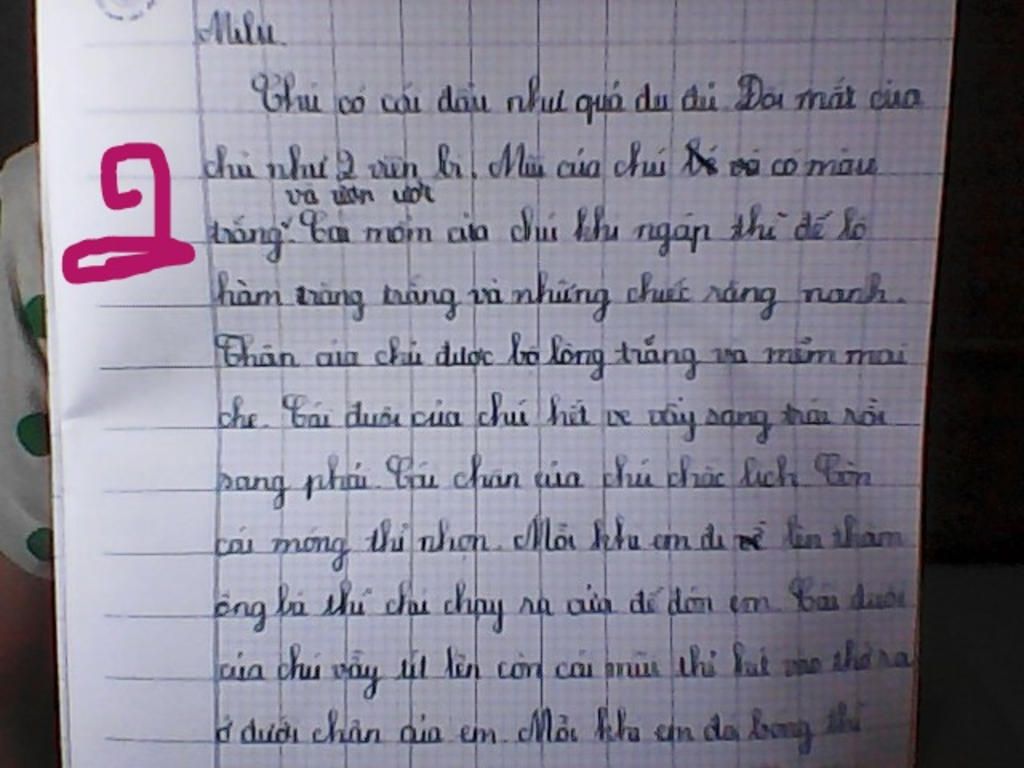 Milu.
Chú có cái đầu như quả đu đủ Đôi mắt của
chú như 2 viên bi. Mũi của chú có màu
và ươn ướt
trắng. Cái mồm của chú khi ngáp thì để lộ
hàm răng trắng và những chiếc răng nanh.
Thân của chú được bộ lông trắng và mềm mại
che. Cái đuôi của chú hết ve vẩy sang trái rồi
sang phải. Cái chân của chú chắc lịch Còn
cái móng thì nhọn. Mỗi khi em đi về lên thăm
ông bà thì chú chạy ra cửa để đón em Cái đuôi
của chú vẫy tít lên còn cái mũi thì hít vào thở ra
ở dưới chân của em. Mỗi khi em đá bóng thì